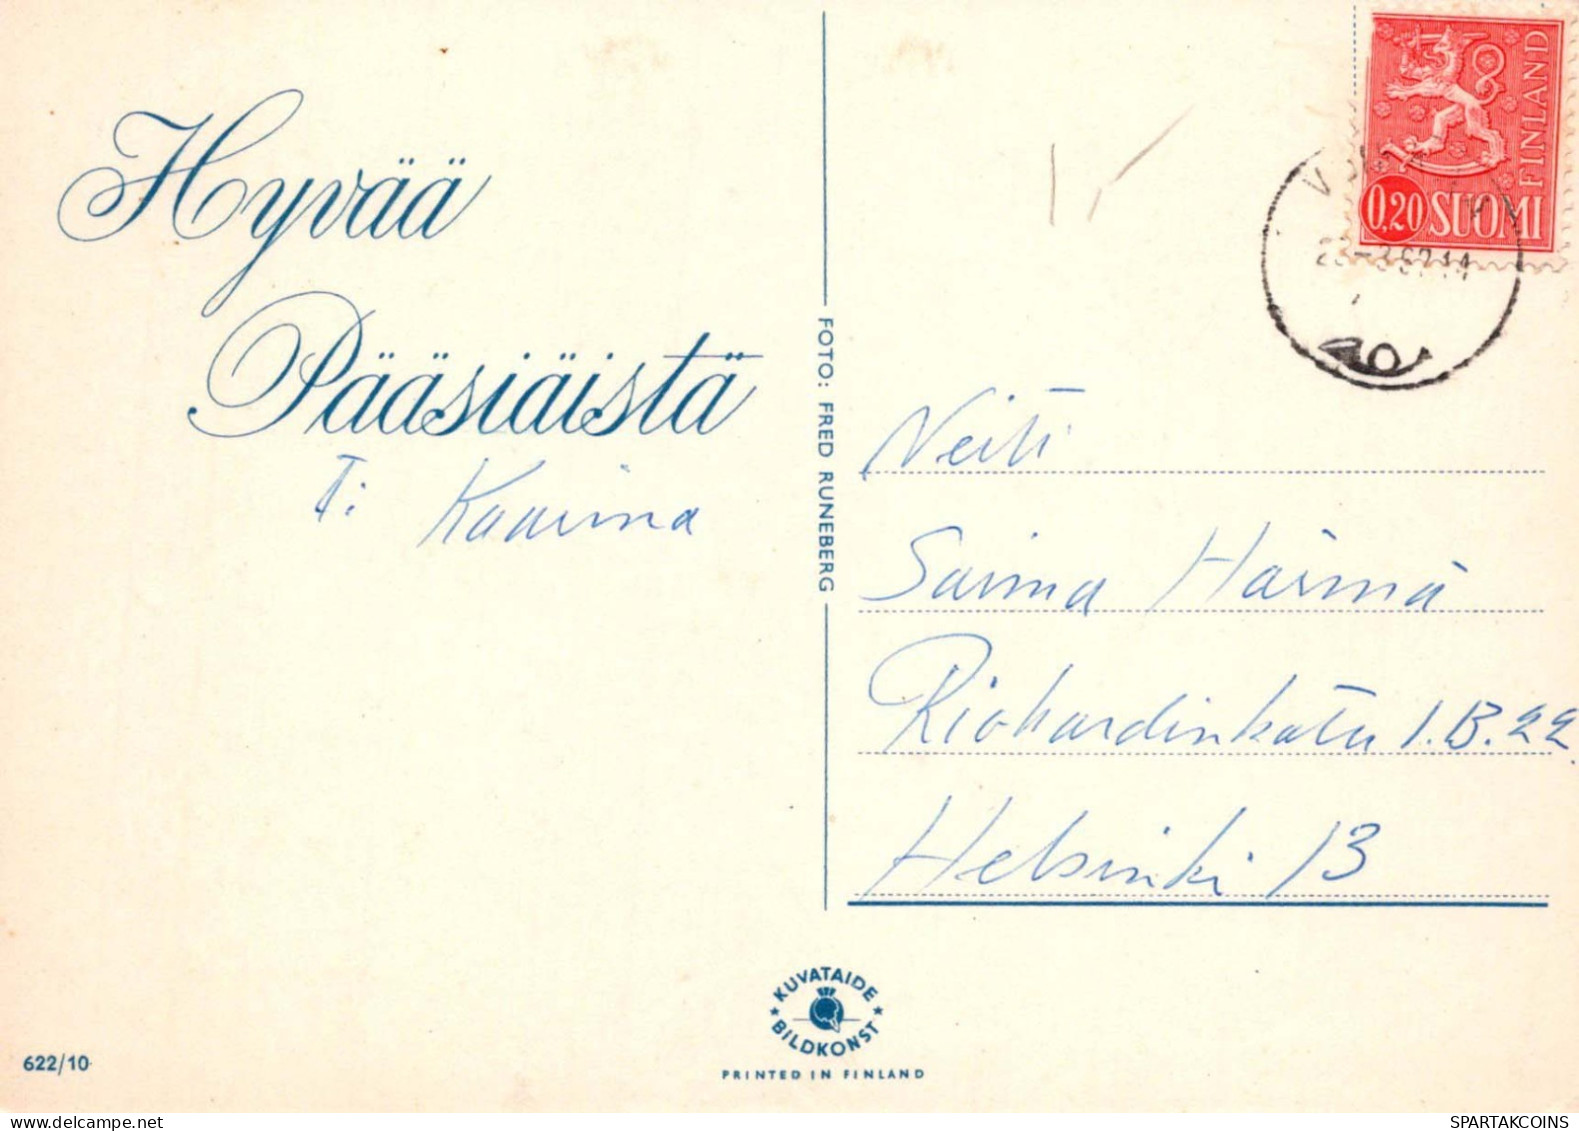 Hyvää
Pääsiäistä
T: Kaarina
FOTO: FRED RUNEBERG
0,20 SUOMI
FINLAND
Neiti
Saima Härmä
Richardinkatu 1.B.22.
Helsinki 13
KUVATAIDE
BILDKONST
PRINTED IN FINLAND
622/10
delcampe.net
SPARTAKCOINS